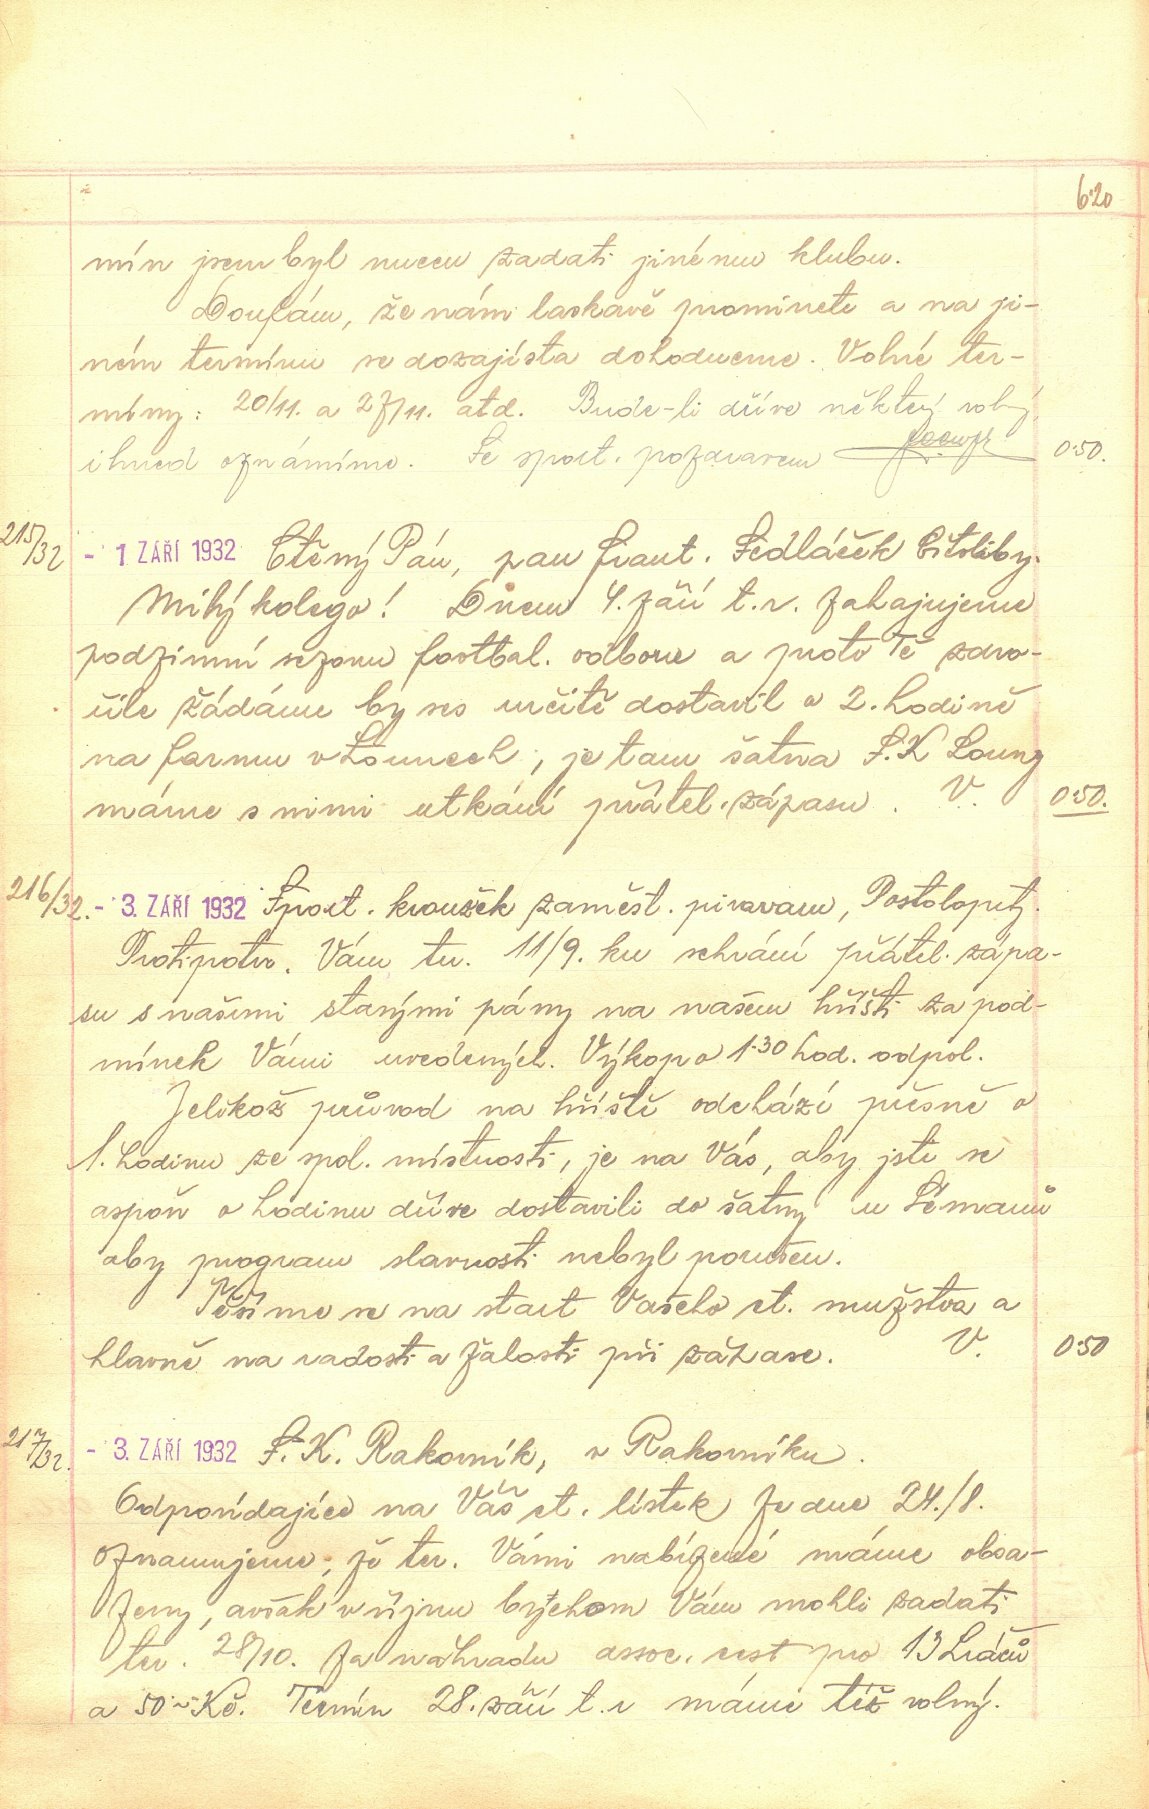 6·20
mín jsem byl nucen zadati jinému klubu.
Doufám, že nám laskavě prominete a na ji-
ném termínu se dozajista dohodneme. Volné ter-
míny: 20/11. a 27/11. atd. Bude-li dříve některý volný
ihned oznámíme. Se sport. pozdravem 0·50.
215/32 - 1 ZÁŘÍ 1932 Ctěný Pán, pan Frant. Sedláček Citoliby.
Milý kolego! Dnem 4. září t.r. zahajujeme
podzimní sezonu footbal. odboru a proto Tě zdvo-
řile žádáme by ses určitě dostavil o 2. hodině
na farmu v Lounech, je tam šatna S.K Louny
máme s nimi utkání přátel. zápasu. V. 0·50.
216/32. - 3. ZÁŘÍ 1932 Sport. kroužek zaměst. pivovaru, Postoloprty.
Protipotv. Vám ter. 11/9. ku sehrání přátel. zápa-
su s našimi starými pány na našem hřišti za pod-
mínek Vámi uvedených. Výkop o 1·30 hod. odpol.
Jelikož průvod na hřiště odchází přesně o
1. hodinu ze spol. místnosti, je na Vás, aby jste se
aspoň o hodinu dříve dostavili do šatny u
aby program slavnosti nebyl porušen.
Těšíme se na start Vašeho ct. mužstva a
hlavně na radosti a žalosti při zábavě. V. 0·50
217/32. - 3. ZÁŘÍ 1932 S.K. Rakovník, v Rakovníku.
Odpovídajíce na Váš ct. lístek ze dne 24./8.
oznamujeme, že ter. Vámi nabízené máme obsa-
zeny, avšak v říjnu bychom Vám mohli zadati
ter. 28/10. za náhradu assoc. cest pro 13 hráčů
a 50·- Kč. Termín 28. září t.r máme též volný.